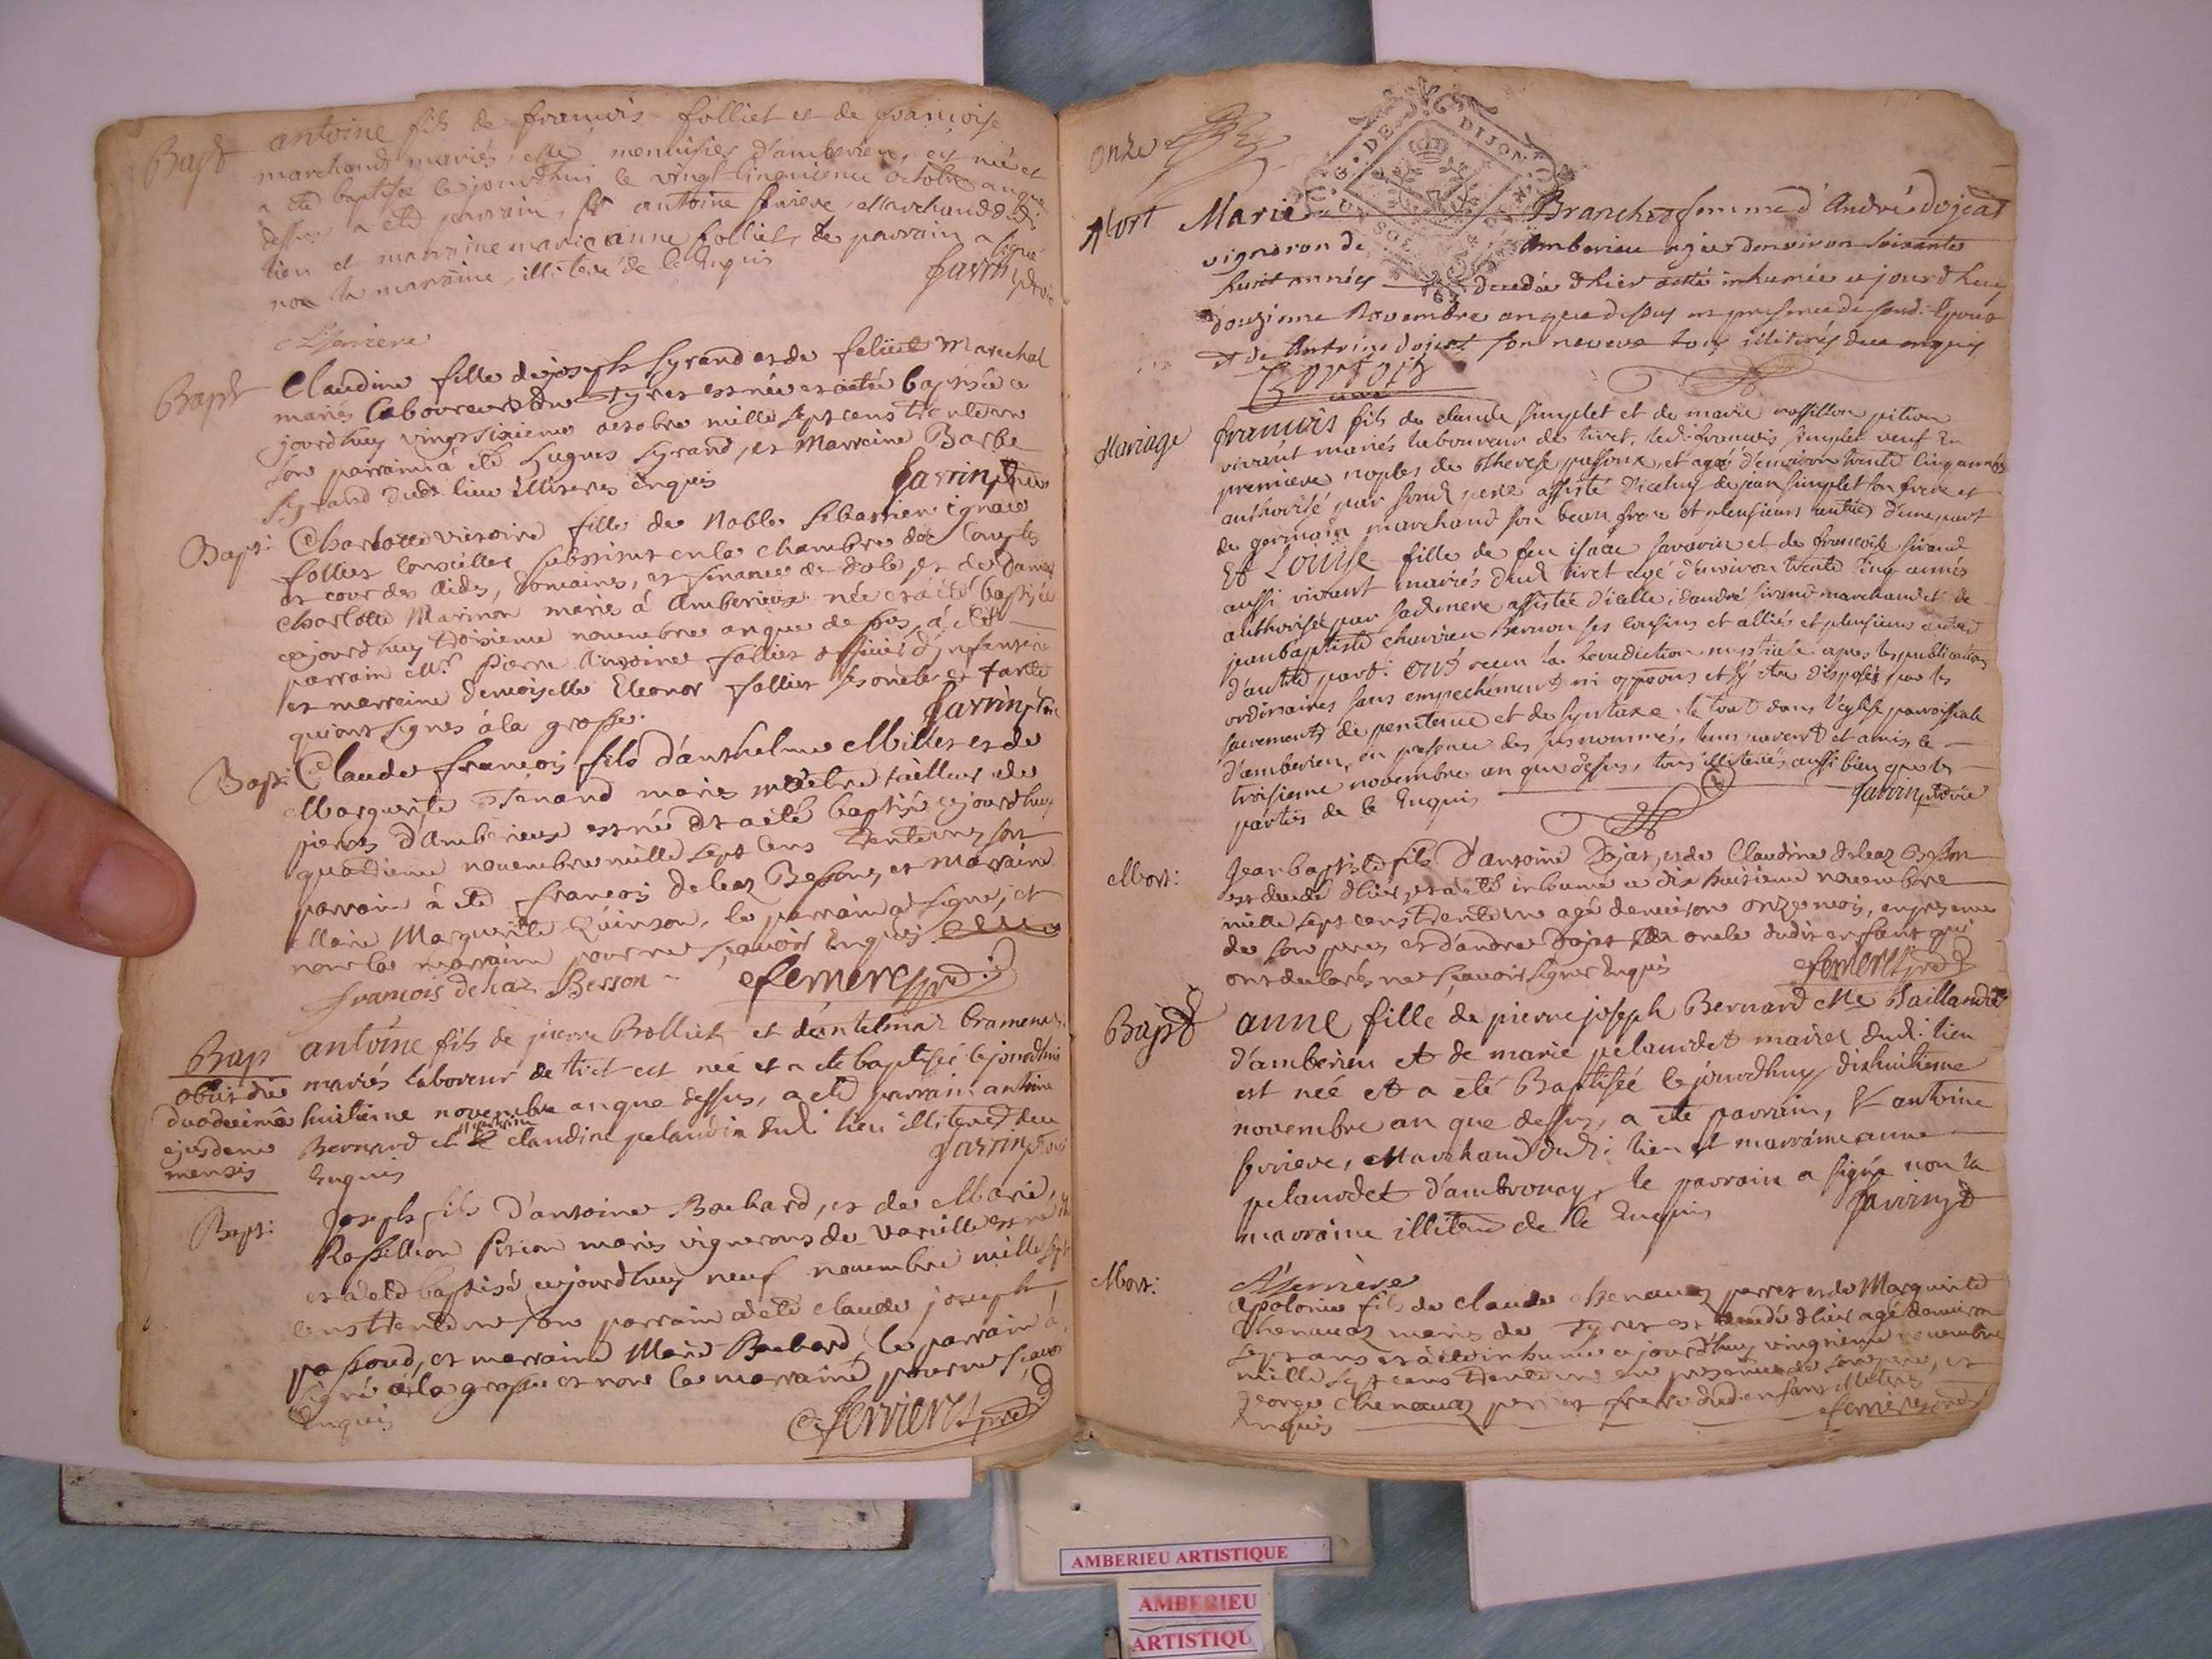 Bapt
antoine fils de francois folliet et de francoise
marchand mariés, me menuisier d'amberieu, est né et
a eté baptisé cejourdhui le vingt cinquieme octobre an que
dessus, a eté parrain, Sr antoine ferriere Marchand dudt
lieu et marraine marie anne folliet, le parrain a signé
non la marraine illiterée de ce Enquis
Jarrin
A ferriere
Bapt
Claudine fille de joseph Syrand et de feliciet Marechal
mariés laboureurs de Tyret est née et a eté baptisée ce
jourdhuy vingt sixieme octobre mille sept cens trente un
son parrain a eté hugues Syrand, et Marraine Barbe
Syrand dudt lieu illiterés enquis
Jarrin
Bapt:
Charlotte victoire fille de Noble Sebastien ignace
folliet Conseiller Substitut en la chambre des Comptes
et cour des Aides, Domaines, et finances de dole, et de Dame
Charlotte Marinon mariés á Amberieux née et á eté baptisée
cejourdhuy troisieme novembre an que dessus, á eté
parrain Mr pierre Antoine folliet officier d'infanterie
et marraine demoiselle Eleonor folliet ses oncle et tante
qui ont signés á la grosse.
Jarrin
Bapt:
Claude francois fils d'anthelme Milliet et de
Marguerite Tenand mariés maitre tailleur de
pierres d'Amberieux est né et a eté baptisé cejourdhuy
quatrieme novembre mille sept cens trente un son
parrain á eté francois delaz Besson, et Maraine
Marguerite Quinson, le parrain a signé, et
non la marraine pour ne sçavoir Enquis
francois dehaz Besson
ferriere
Bap
obiit die
duodecimâ
ejusdem
mensis
antoine fils de pierre Brolliet et d'antelma bramene
mariés laboureur de tiret est né et a eté baptisé cejourdhui
huitieme novembre an que dessus, a eté parrain antoine
Bernard et marraine claudine pelaudin dudt lieu illiterés de ce
Enquis
Jarrin
Bapt:
Joseph fils d'antoine Bouchard, et de Marie
Rossillion Pition mariés vignerons de Vareille est né
et a eté baptisé cejourdhuy neuf novembre mille sept
cens trente un son parrain a eté claude joseph
passoud, et marraine Marie Bouchard, le parrain á
signé á la grosse et non la marraine pour ne sçavoir
Enquis
ferriere
onze
G. DE DIJON
Mort
Marie Branche femme d'André dojeat
vigneron de Amberieu agée denviron soixante
huit années decedée d'hier a eté inhumée cejourdhuy
douzieme Novembre an que dessus en presence de sond. Epoux
et de Antoine dojeat son neveux tous illiterés de ce enquis
Mariage
francois fils de claude simplet et de marie rossillon pition
vivant mariés laboureur de tiret, ledt francois simplet veuf en
premiere nopces de therese passoux, et agé d'environ trente cinq années
authorisé par sond pere assisté d'iceluy de jean simplet son frere et
de germain marchand son beau frere et plusieurs autres d'une part
Et Louise fille de feu isaac savarin et de francoise sirand
aussi vivant mariés dudt tiret agé d'environ trente cinq années
authorisée par sad mere assistée d'icelle, d'andré sirand marchand et de
jean baptiste charrien Bernon ses cousins et alliés et plusieurs autres
d'autre part. Ont recu la benediction nuptiale apres les publications
ordinaires sans empechement ni oppons et s'y etre disposés par les
sacrements de penitence et de syntaxe, le tout dans l'eglise parroissiale
d'amberieu, en presence des susnommés, leurs parent et amis, le
troisieme novembre an que dessus, tous illiterés aussi bien que les
parties de ce Enquis
Jarrin
Mort:
Jean baptiste fils d'antoine Dojat, et de Claudine delaz Besson
est decedé dhier, et a eté inhumé ce dix huitieme novembre
mille sept cens trente un agé denviron onze mois, en presence
de son pere, et d'andre Dojat oncle dudit enfant qui
ont declarés ne sçavoir signer Enquis
ferriere
Bapt
anne fille de pierre joseph Bernard Me Taillandier
d'amberieu et de marie pelaudet mariez dudt: lieu
est née et a eté Baptisée cejourdhuy dixhuitieme
novembre an que dessus, a eté parrain, Sr antoine
ferriere, Marchand dudt: lieu et marraine anne
pelaudet d'ambronay, le parrain a signé non la
marraine illiterée de ce Enquis
Jarrin
A ferriere
Mort:
Apolonie fils de claude chenavaz perret et de Marguerite
Chenavaz mariés de Tyret est decedé d'hier agé denviron
sept ans et a eté inhumé cejourdhuy vingtieme novembre
mille sept cens trente un en presence de son pere, et
george Chenavaz perret frere dud. enfant illiterés
Enquis
ferriere
AMBERIEU ARTISTIQUE
AMBERIEU
ARTISTIQU